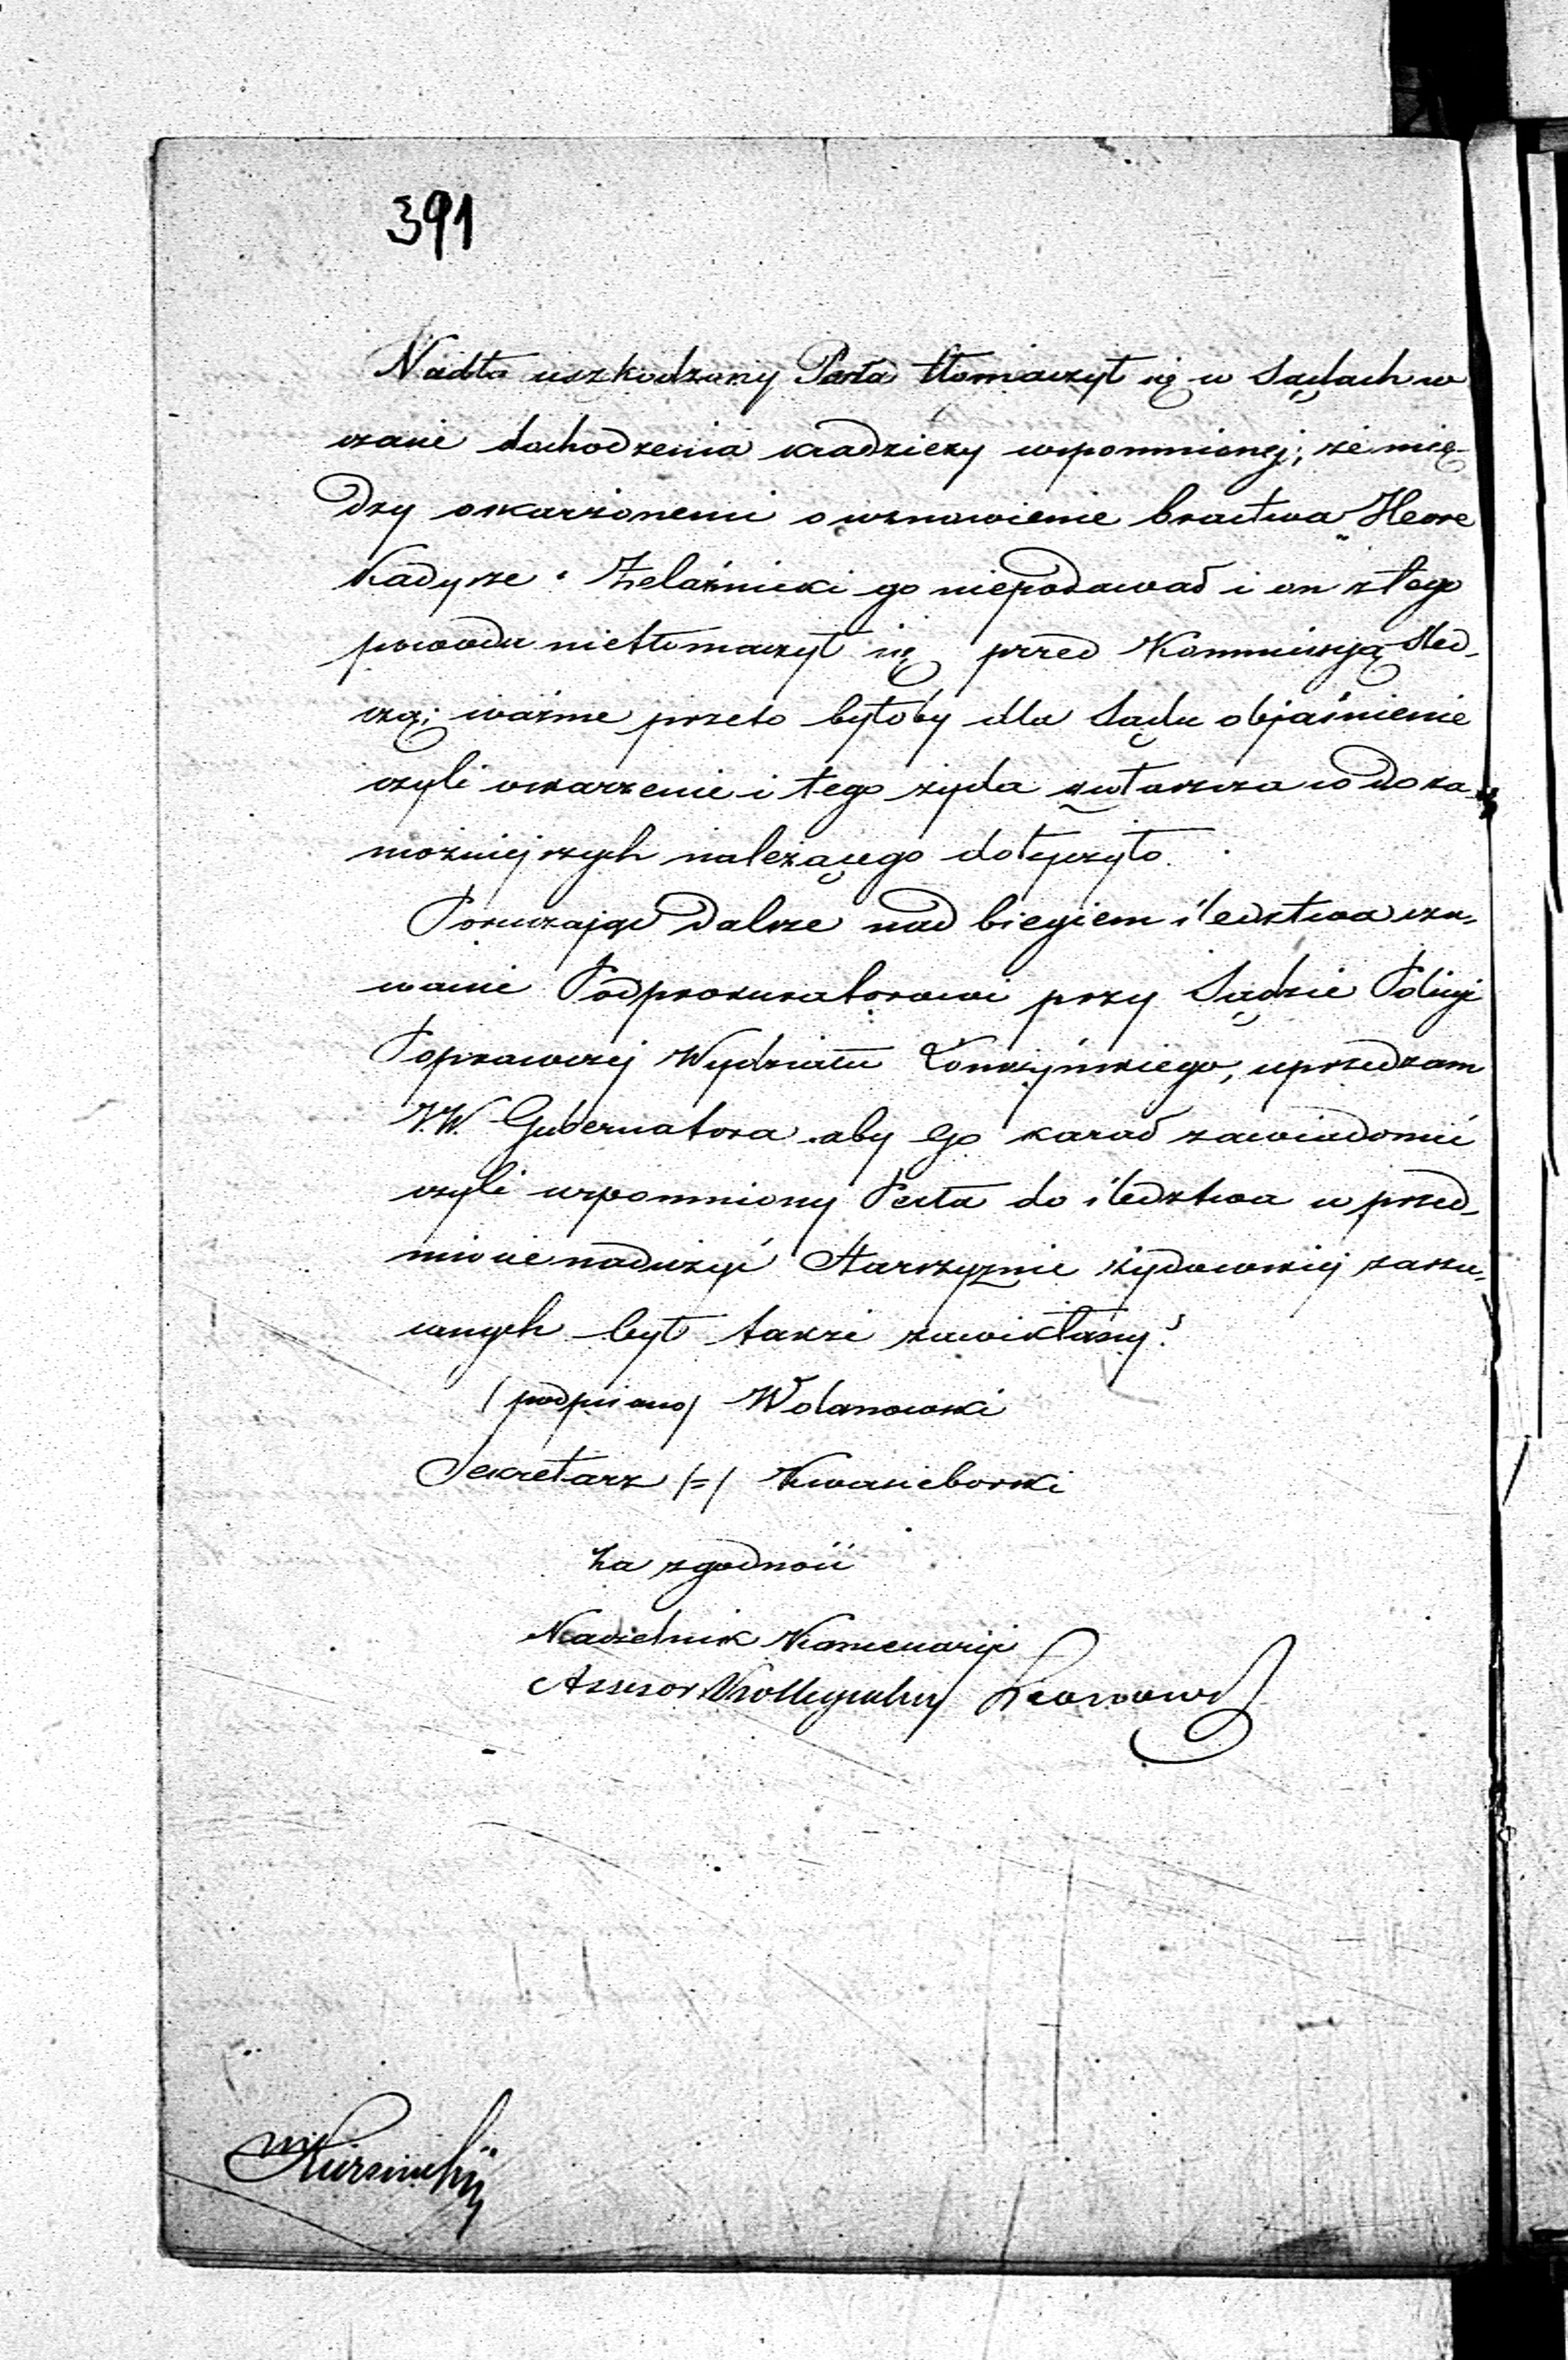 391
Nadto uszkodzony Perła tłomaczył się w Sądach w
czasie dochodzenia kradzieży wspomnionej; że mię-
dzy oskarżonemi o wznowienie bractwa Hewre
Kadysze Żelaźnicki go niepodawał i on z tego
powodu nietłomaczył się przed Kommissyą śled-
czą; ważne przeto byłoby dla Sądu objaśnienie
czyli oskarżenie i tego żyda zwłaszcza do za-
możniejszych należącego dotyczyło.
Poruczając dalsze nad biegiem śledztwa czu-
wanie Podprokuratorowi przy Sądzie Policyi
Poprawczej Wydziału Łomżyńskiego, uprzedzam
J.W. Gubernatora aby go raczył zawiadomić
czyli wspomniony Perła do śledztwa w przed-
miocie nadużyć Starszyznie żydowskiej zarzu-
conych był także zawikłany?
/podpisano/ Wolanowski
Sekretarz /-/ Kwasieborski
Za zgodność
Naczelnik Kancellaryi
Assesor Kollegialny